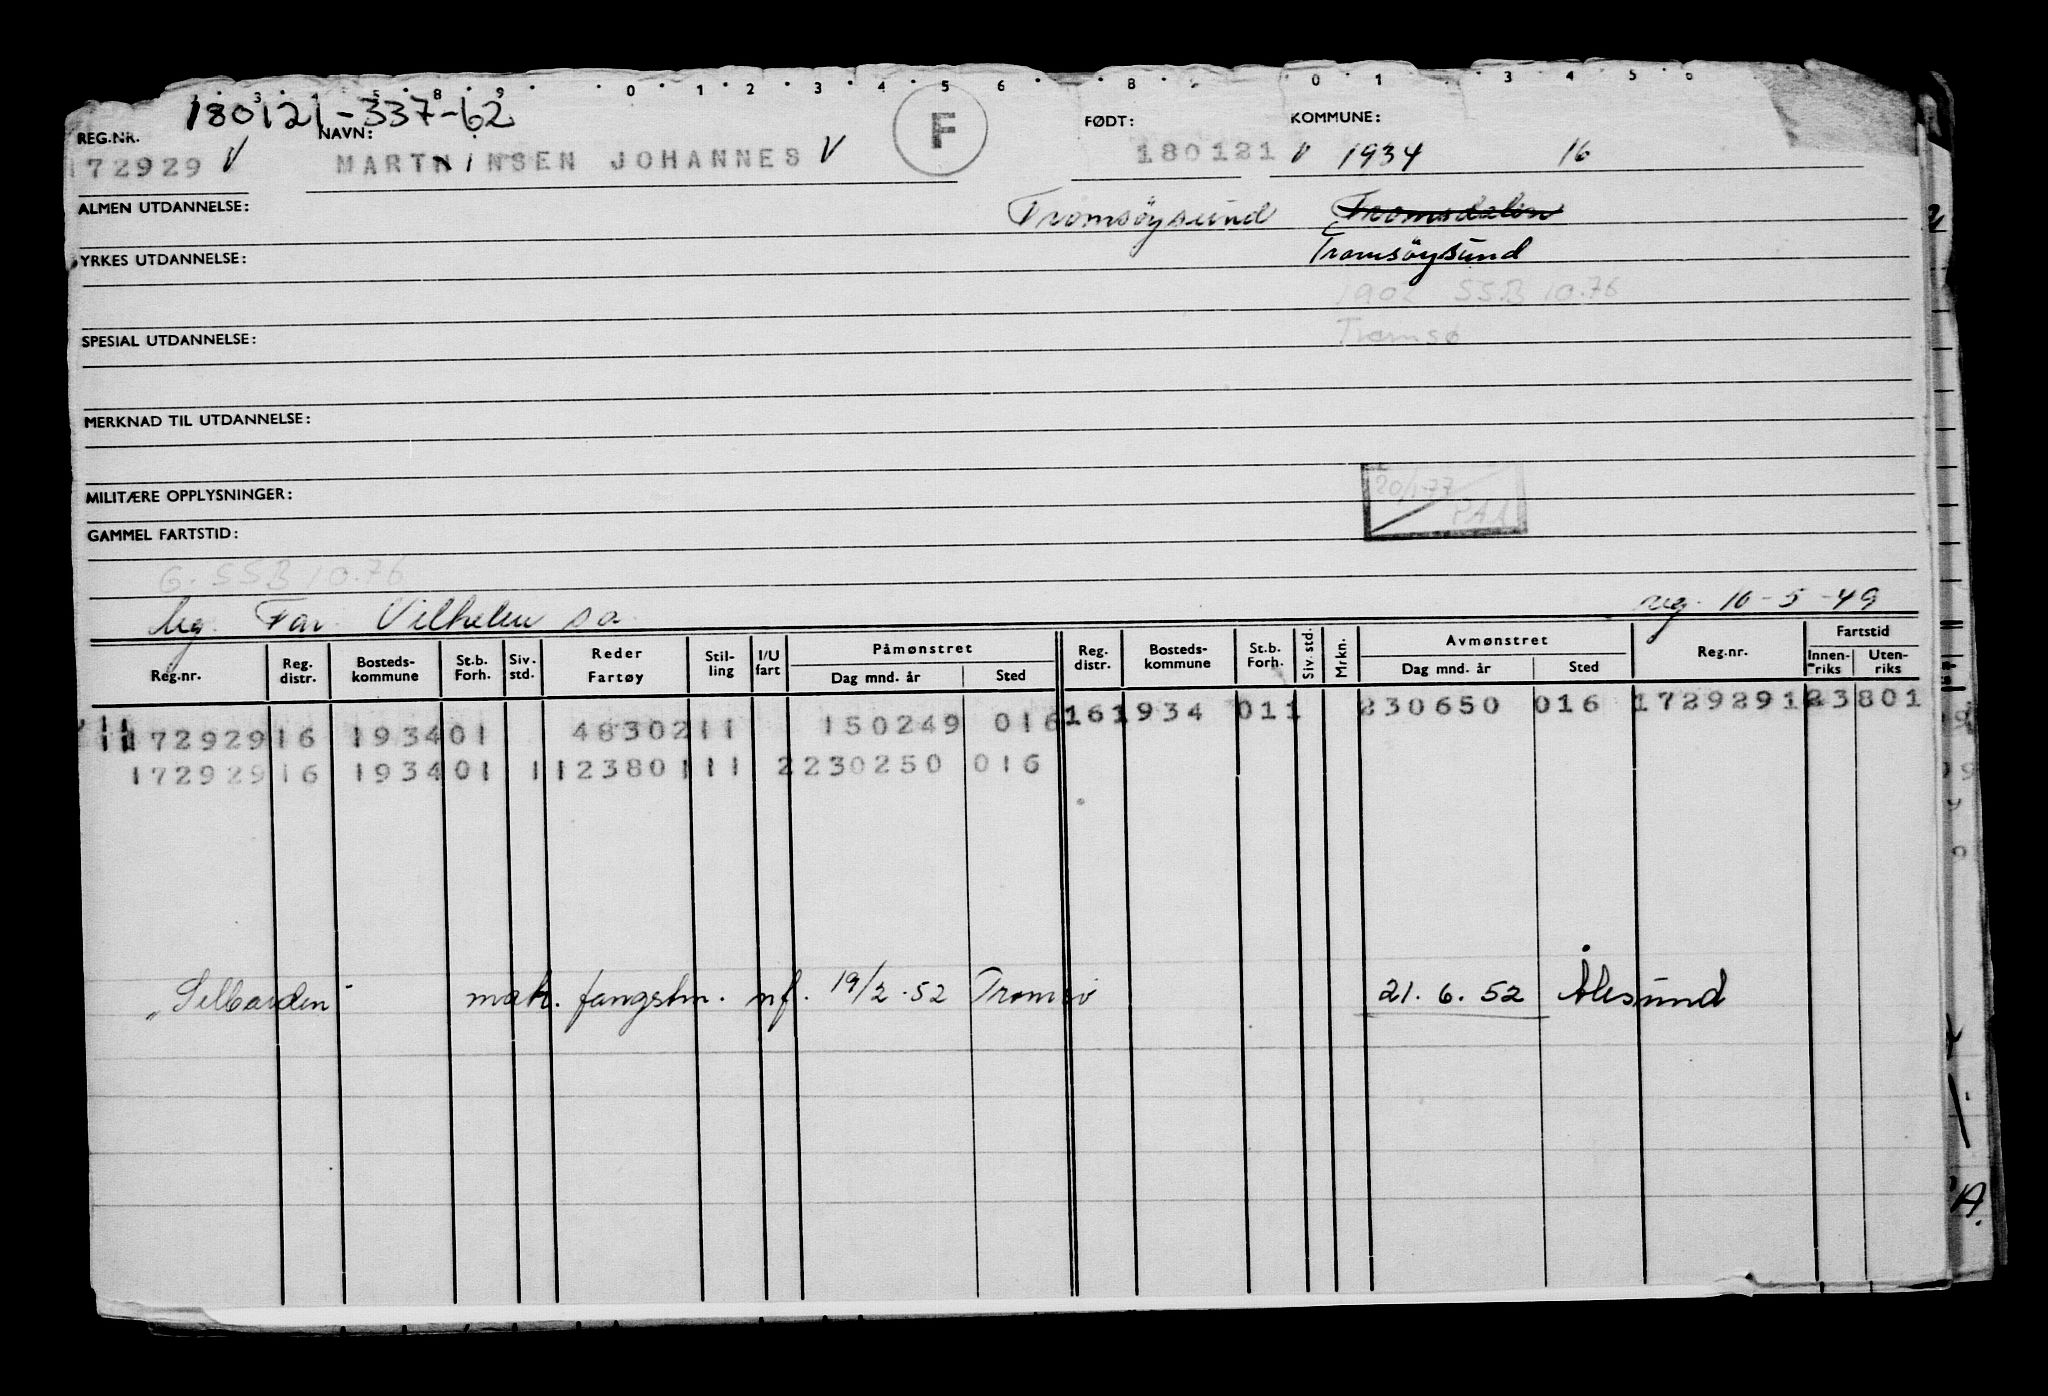 3 5 8 9 0 1 2 3 4 5 6 8 0 1 3 4 5 6
180121-337-62
REG.NR. NAVN: F FØDT: KOMMUNE:
172929 V MARTHINSEN JOHANNES V 180121 V 1934 16
ALMEN UTDANNELSE: Tromsöysund Tromsdalen
YRKES UTDANNELSE: Tromsöysund
1902 SSB 10.76
SPESIAL UTDANNELSE: Tromsø
MERKNAD TIL UTDANNELSE:
MILITÆRE OPPLYSNINGER: 20/1-77
GAMMEL FARTSTID:
G. SSB 10.76
Ug. Far Vilhelm sa. reg. 16-5-49
Reg.nr. Reg. distr. Bosteds-kommune St.b. Forh. Siv. std. Reder Fartøy Stil-ling I/U fart Påmønstret Dag mnd. år Sted Reg. distr. Bosteds-kommune St.b. Forh. Siv. std. Mrkn. Avmønstret Dag mnd. år Sted Reg.nr. Fartstid Innen-riks Uten-riks
172929 16 1934 01 48302 11 150249 016 16 1934 011 230650 016 172929 1 123801
172929 16 1934 01 1 123801 11 2 230250 016
"Selbarden" mak. fangstm. nf. 19/2.52 Tromsø 21.6.52 Ålesund
A.